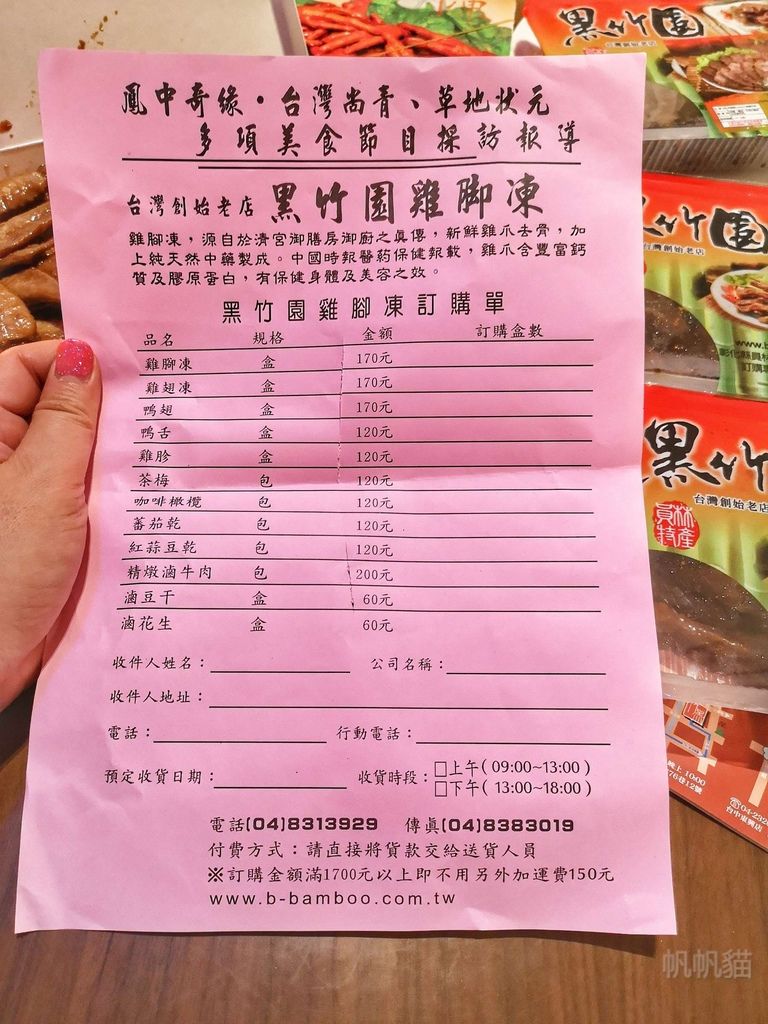 黑竹園
台灣創始老店
鳳中奇緣·台灣尚青、草地状元
多項美食節目採訪報導
台灣創始老店 黑竹園雞腳凍
雞腳凍，源自於清宮御膳房御廚之眞傳，新鮮雞爪去骨，加
上純天然中藥製成。中國時報醫葯保健報載，雞爪含豐富鈣
質及膠原蛋白，有保健身體及美容之效。
黑竹園雞腳凍訂購單
品名 規格 金額 訂購盒數
雞腳凍 盒 170元
雞翅凍 盒 170元
鴨翅 盒 170元
鴨舌 盒 120元
雞胗 盒 120元
茶梅 包 120元
咖啡橄欖 包 120元
蕃茄乾 包 120元
紅蒜豆乾 包 120元
精燉滷牛肉 包 200元
滷豆干 盒 60元
滷花生 盒 60元
收件人姓名： 公司名稱：
收件人地址：
電話： 行動電話：
預定收貨日期： 收貨時段：□上午(09:00~13:00)
□下午(13:00~18:00)
電話(04)8313929 傳眞(04)8383019
付費方式：請直接將貨款交給送貨人員
※訂購金額滿1700元以上即不用另外加運費150元
www.b-bamboo.com.tw
黑竹園
台灣創始老店
www.b
彰化縣員林
訂購專
黑竹
台灣創始老店
員林特產
晚上 10:00
76巷12號
04-232
台中東興店
帆帆貓